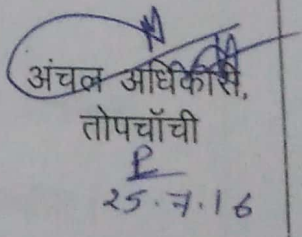 अंचल अधिकारी,
तोपचाँची
25.7.16